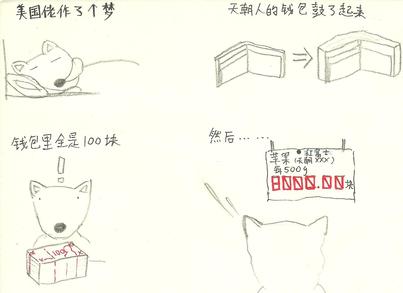 美国佬作了个梦
天朝人的钱包鼓了起来
钱包里全是100块
!
100元
然后……
苹果●红富士
(天朝XXX)
每500g
8000.00块